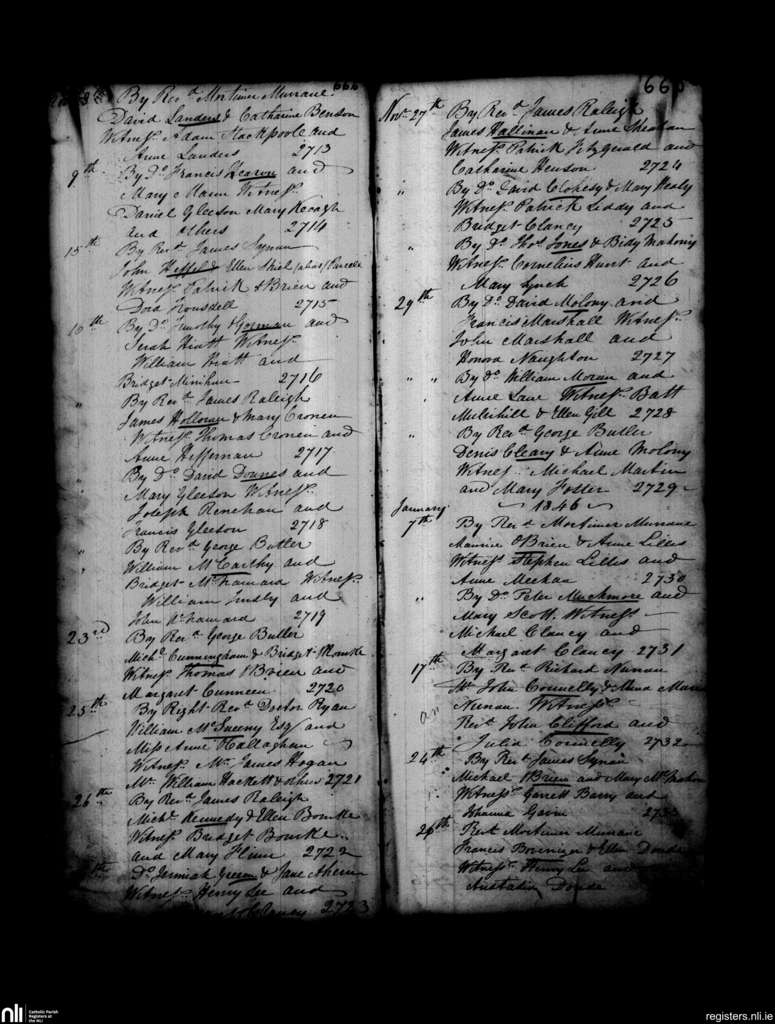 660
8th By Revd Mortimer Murrane
David Landers & Catharine Benson
Witness Adam Stackpoole and
Anne Landers 2713
9th By Do Francis Hearn and
Mary Mann Witness
Daniel Gleeson Mary Keogh
and others 2714
15th By Revd James Synan
John & Ellen alias Purcell
Witness Patrick O Brien and
Dora Trousdell 2715
16th By Do Timothy Gorman and
Sarah Hiatt Witness
William Hiatt and
Bridget Minihan 2716
" By Revd James Raleigh
James Holloran & Mary Cronin
Witness Thomas Cronin and
Anne Heffernan 2717
By Do David Downes and
Mary Gleeson Witness
Joseph Renehan and
Francis Gleeson 2718
" By Revd George Butler
William McCarthy and
Bridget McNamara Witness
William and
John McNamara 2719
23rd By Revd George Butler
Michl Cunningham & Bridget Bourke
Witness Thomas O Brien and
Margaret Cunneen 2720
25th By Right Revd Doctor Ryan
William McSweeny Esq and
Miss Anne O Callaghan
Witness Mr James Hogan
Mr William Hackett & others 2721
26th By Revd James Raleigh
Michl Kennedy & Ellen Bourke
Witness Bridget Bourke
and Mary Flinn 2722
Do Jermiah Green & Jane Ahern
Witness Henry Lee and
2723
660
Novr 27th By Revd James Raleigh
James Hallinan & Anne Sheahan
Witness Patrick Fitzgerald and
Catharine Henson 2724
" By Do David Clohesy & Mary Healy
Witness Patrick Liddy and
Bridget Clancy 2725
" By Do Thos Jones & Bidy Mahony
Witness Cornelius Hunt and
Mary Lynch 2726
29th By Do David Molony and
Francis Marshall Witness
John Marshall and
Honora Naughton 2727
" " By Do William Moran and
Anne Lane Witness Batt
Mulcihill & Ellen Gill 2728
" By Revd George Butler
Denis Cleary & Anne Molony
Witness Michael Martin
and Mary Foller 2729
1846
January
7th By Revd Mortimer Murrane
Maurice O Brien & Anne Lilles
Witness Stephen Lilles and
Anne Meehan 2730
" By Do Peter Muckmore and
Mary Scott, Witness
Michael Clancy and
Margaret Clancy 2731
17th By Revd Richard Nunan
Mr John Connelly & Anna Maria
Nunan Witness
Revd John Clifford and
Julia Connelly 2732
24th By Revd James Synan
Michael O Brien and Mary McMahon
Witness Garrett Barry and
Johanna Gavin 2733
26th Revd Mortimer Murrane
Francis & Ellen Doude
Witness Henry Lee and
Doude
nli
Catholic Parish
Registers at
the NLI
registers.nli.ie